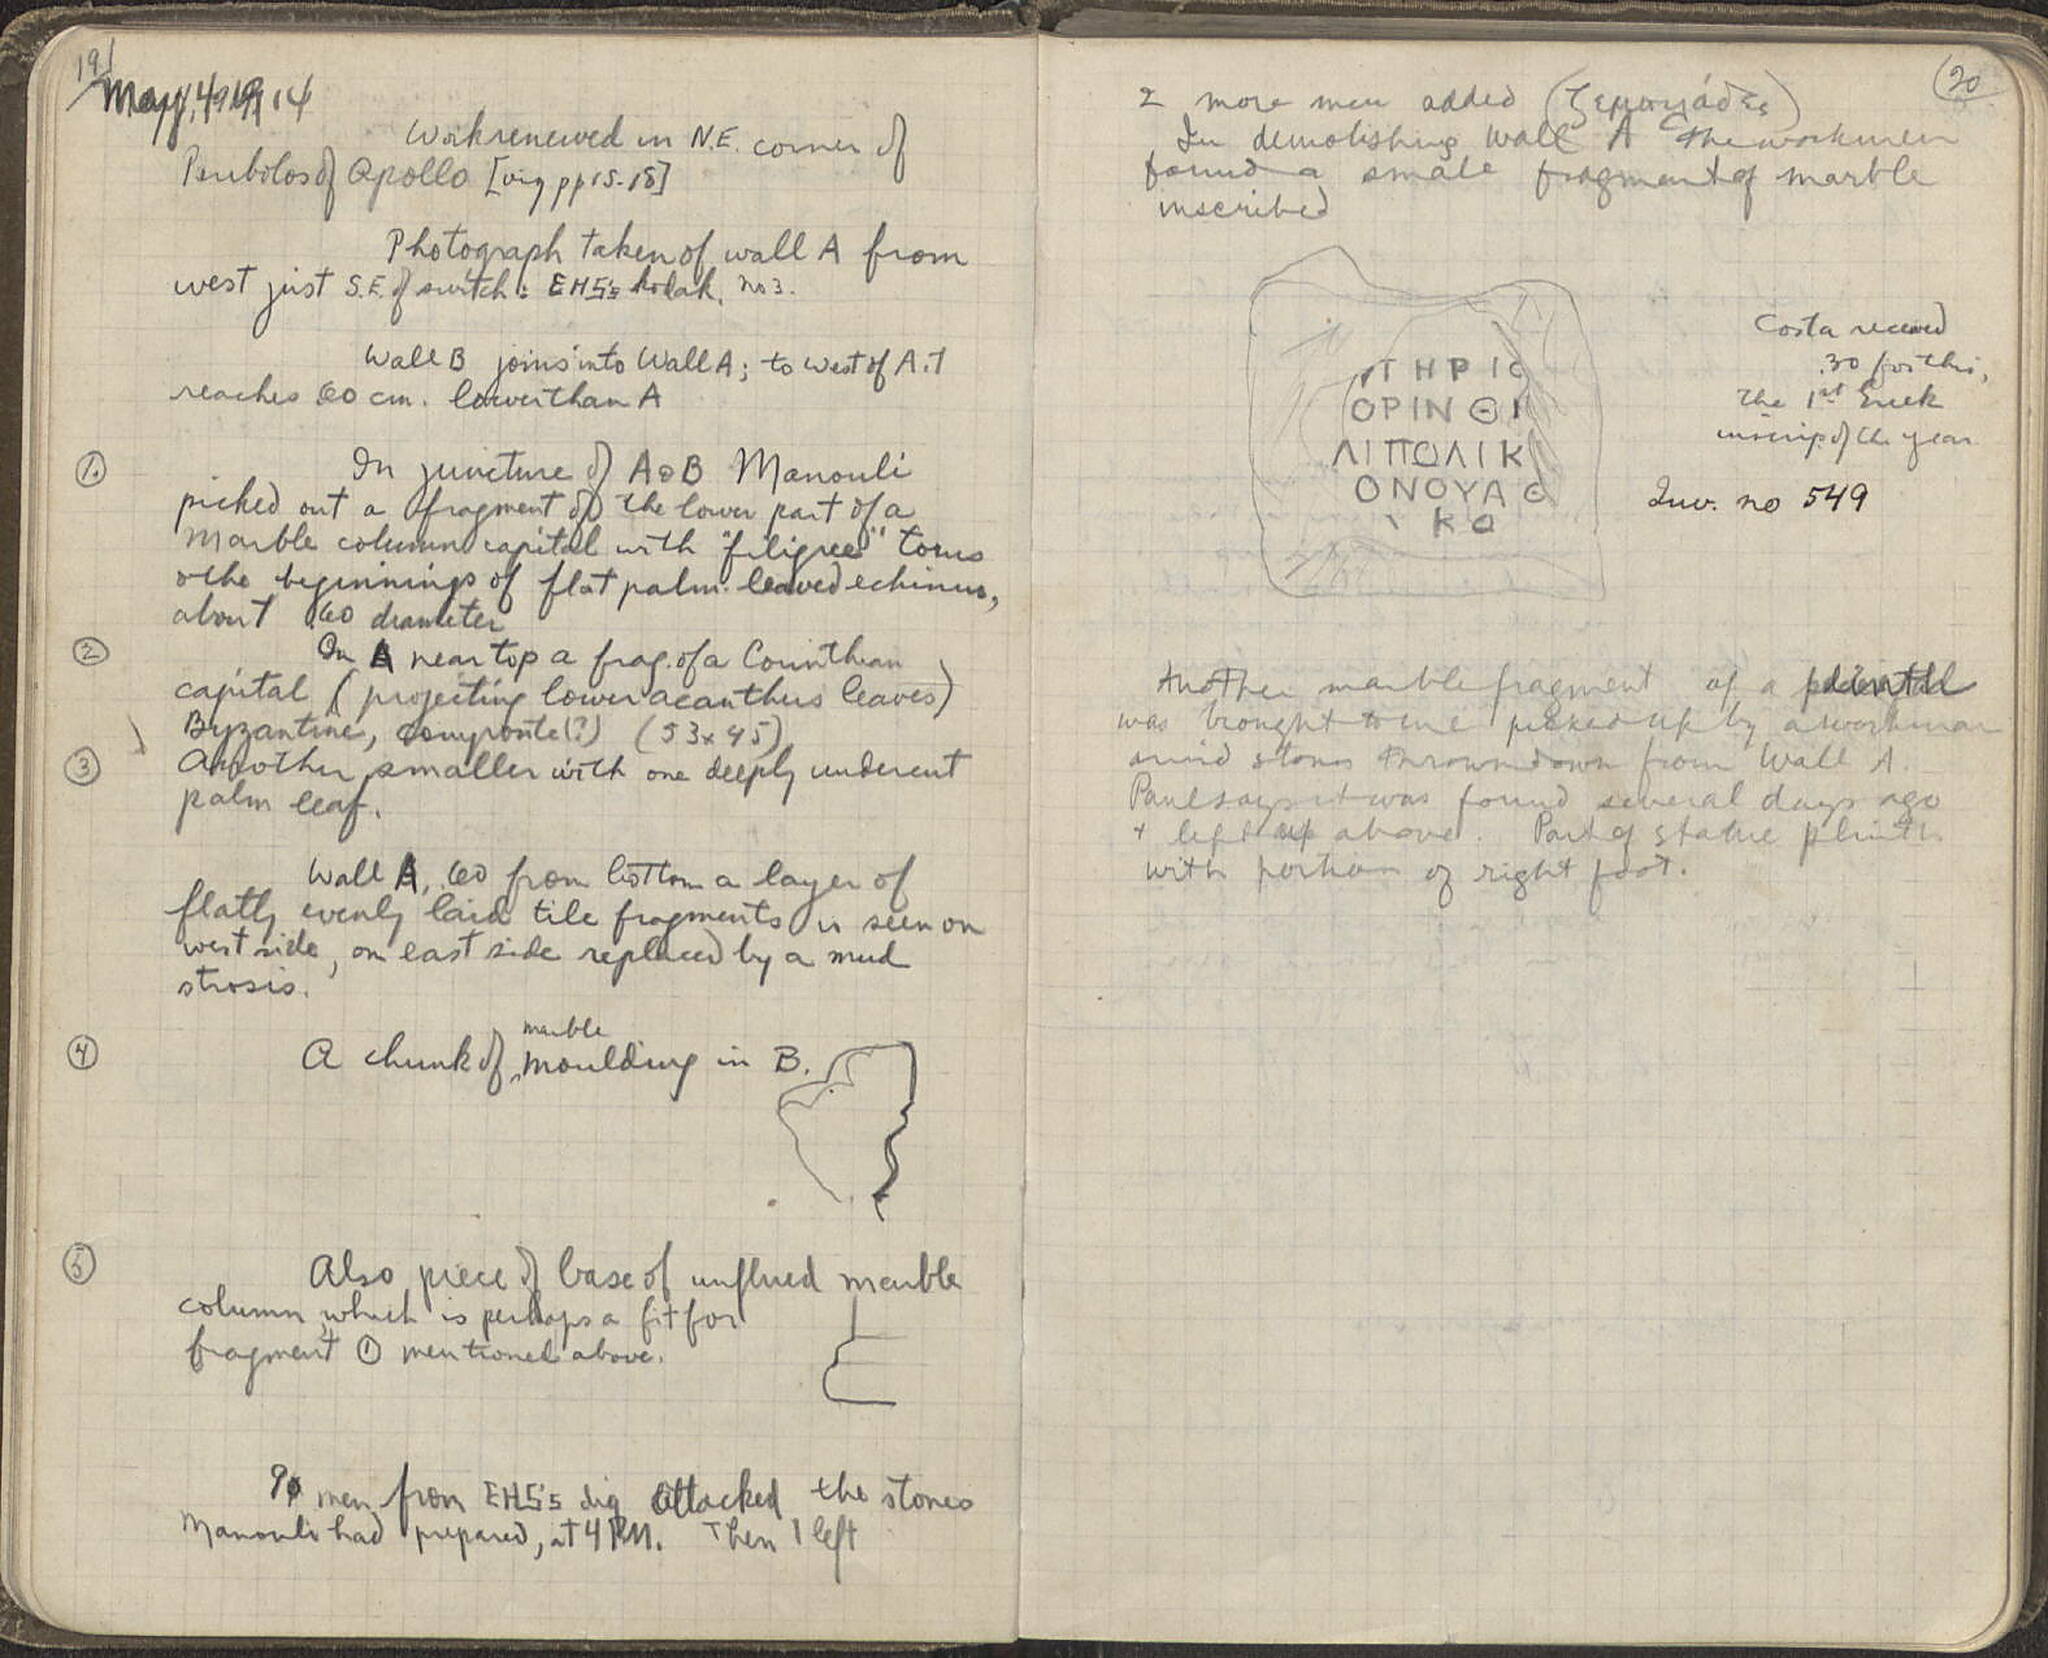 19
May, 4, 1914
Work renewed in N.E. corner of
Peribolos of Apollo [vig pp 15-18]
Photograph taken of wall A from
west just S.E. of switch: EHS's kodak, no 3.
Wall B joins into Wall A; to west of A it
reaches 60 cm. lower than A
1. In juncture of A & B Manouli
picked out a fragment of the lower part of a
marble column capital with "filigree" torus
& the beginnings of flat palm-leaved echinus,
about .60 diameter
2 In A near top a frag. of a Corinthean
capital (projecting lower acanthus leaves)
Byzantine, composite (?) (53 x 45)
3 Another smaller with one deeply undercut
palm leaf.
Wall A, .60 from bottom a layer of
flatly evenly laid tile fragments is seen on
west side, on east side replaced by a mud
strosis.
4 A chunk of marble moulding in B.
5 Also piece of base of unflued marble
column which is perhaps a fit for
fragment ① mentioned above.
9 men from EHS's dig attacked the stones
Manouli had prepared, at 4 PM. Then I left
20
2 more men added
In demolishing wall A the workmen
found a small fragment of marble
inscribed
ΤΗΡΙΟ
ΟΡΙΝΘΙ
ΛΙΠΟΛΙΚ
ΟΝΟΥΑΘ
ΚΟ
Costa received
.30 for this,
the 1st Greek
inscrip of the year
Inv. no 549
Another marble fragment of a
was brought to me picked up by a workman
amid stones thrown down from Wall A.
Paul says it was found several days ago
+ left up above. Part of statue plinth
with portion of right foot.